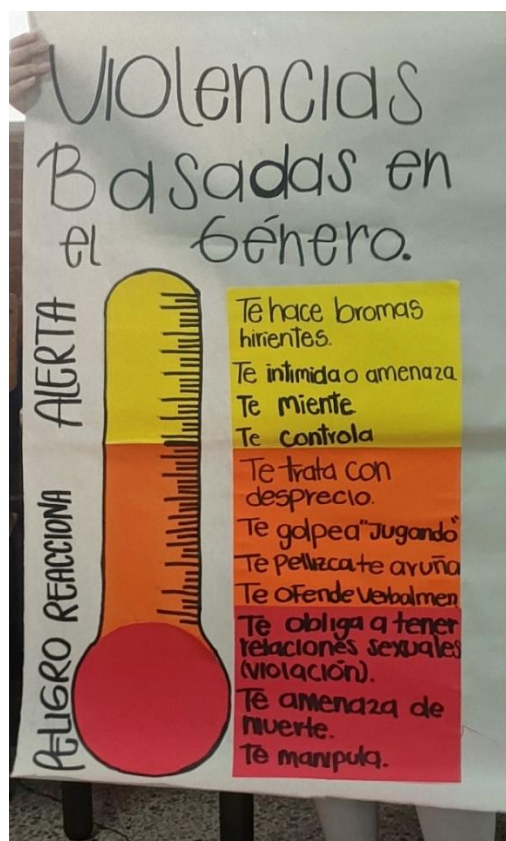 VIOlencias
Basadas en
el Género.
ALERTA
REACCIONA
PELIGRO
Te hace bromas
hirientes.
Te intimida o amenaza
Te Miente
Te controla
Te trata con
desprecio.
Te golpea "Jugando"
Te Pellizca te aruña
Te Ofende Verbalmen
Te obliga a tener
relaciones sexuales
(violación).
Te amenaza de
muerte.
Te manipula.